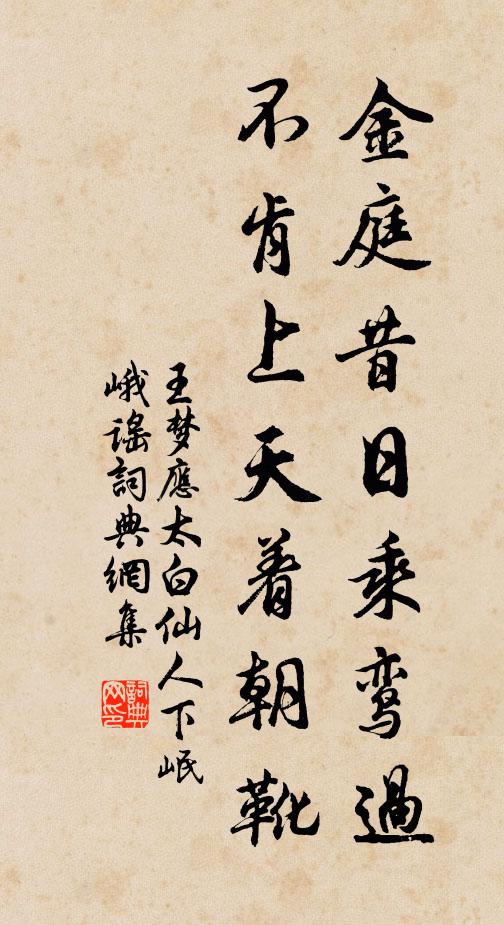 金庭昔日乘鸾過
不肯上天着朝靴
王梦應太白仙人下岷
峨謠詞典網集
詞典
网印